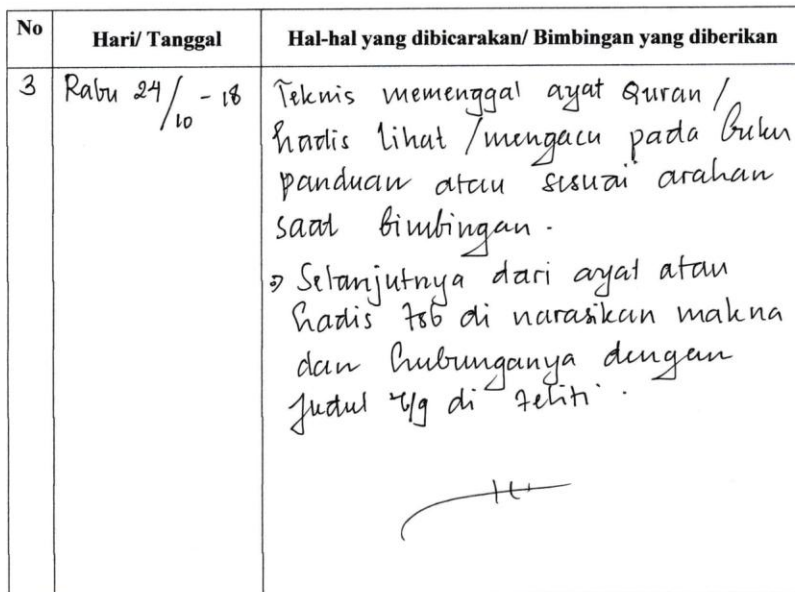 No Hari/ Tanggal Hal-hal yang dibicarakan/ Bimbingan yang diberikan
3 Rabu 24/10 - 18 Teknis memenggal ayat Quran /
hadis lihat / mengacu pada buku
panduan atau sesuai arahan
saat bimbingan.
Selanjutnya dari ayat atau
hadis tsb di narasikan makna
dan hubunganya dengan
judul y/g di teliti.